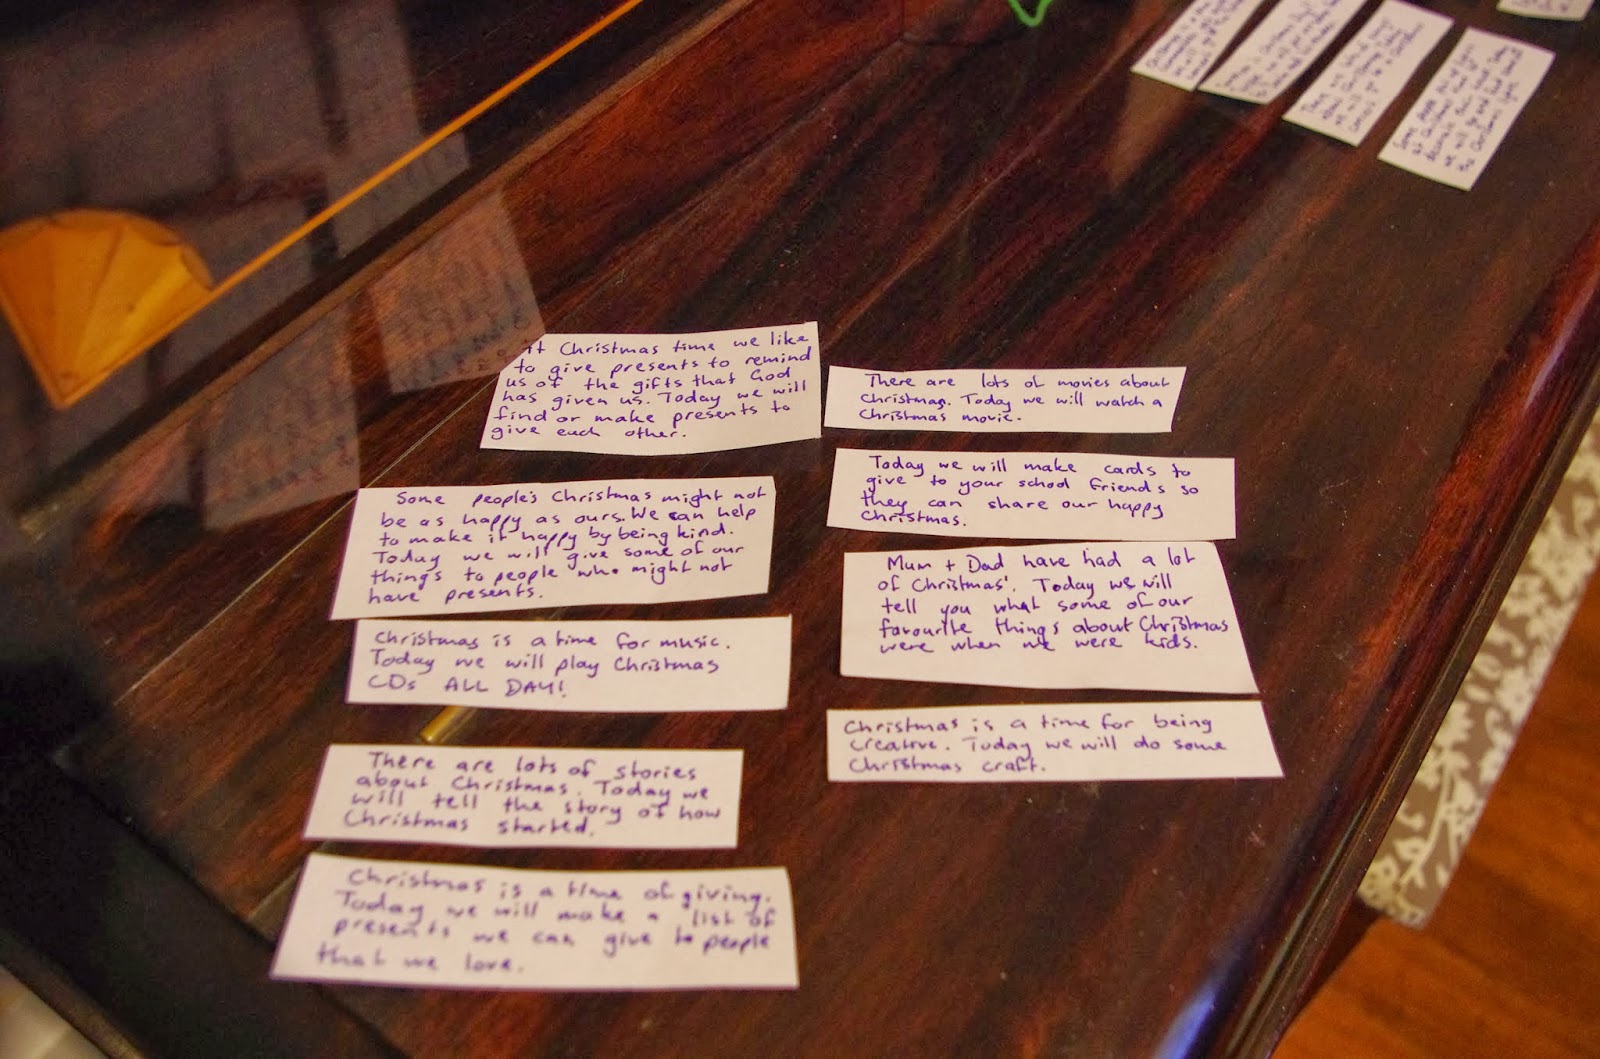 At Christmas time we like
to give presents to remind
us of the gifts that God
has given us. Today we will
find or make presents to
give each other.
There are lots of movies about
Christmas. Today we will watch a
Christmas movie.
Some people's Christmas might not
be as happy as ours. We can help
to make it happy by being kind.
Today we will give some of our
things to people who might not
have presents.
Today we will make cards to
give to your school friends so
they can share our happy
Christmas.
Mum + Dad have had a lot
of Christmas'. Today we will
tell you what some of our
favourite things about Christmas
were when we were kids.
Christmas is a time for music.
Today we will play Christmas
CDs ALL DAY!
Christmas is a time for being
creative. Today we will do some
Christmas craft.
There are lots of stories
about Christmas. Today we
will tell the story of how
Christmas started.
Christmas is a time of giving.
Today we will make a list of
presents we can give to people
that we love.
There are lots of
Today
we will go to a Christmas
Some people
at Christmas
decorate their Today
we will go and look at
the Christmas lights.